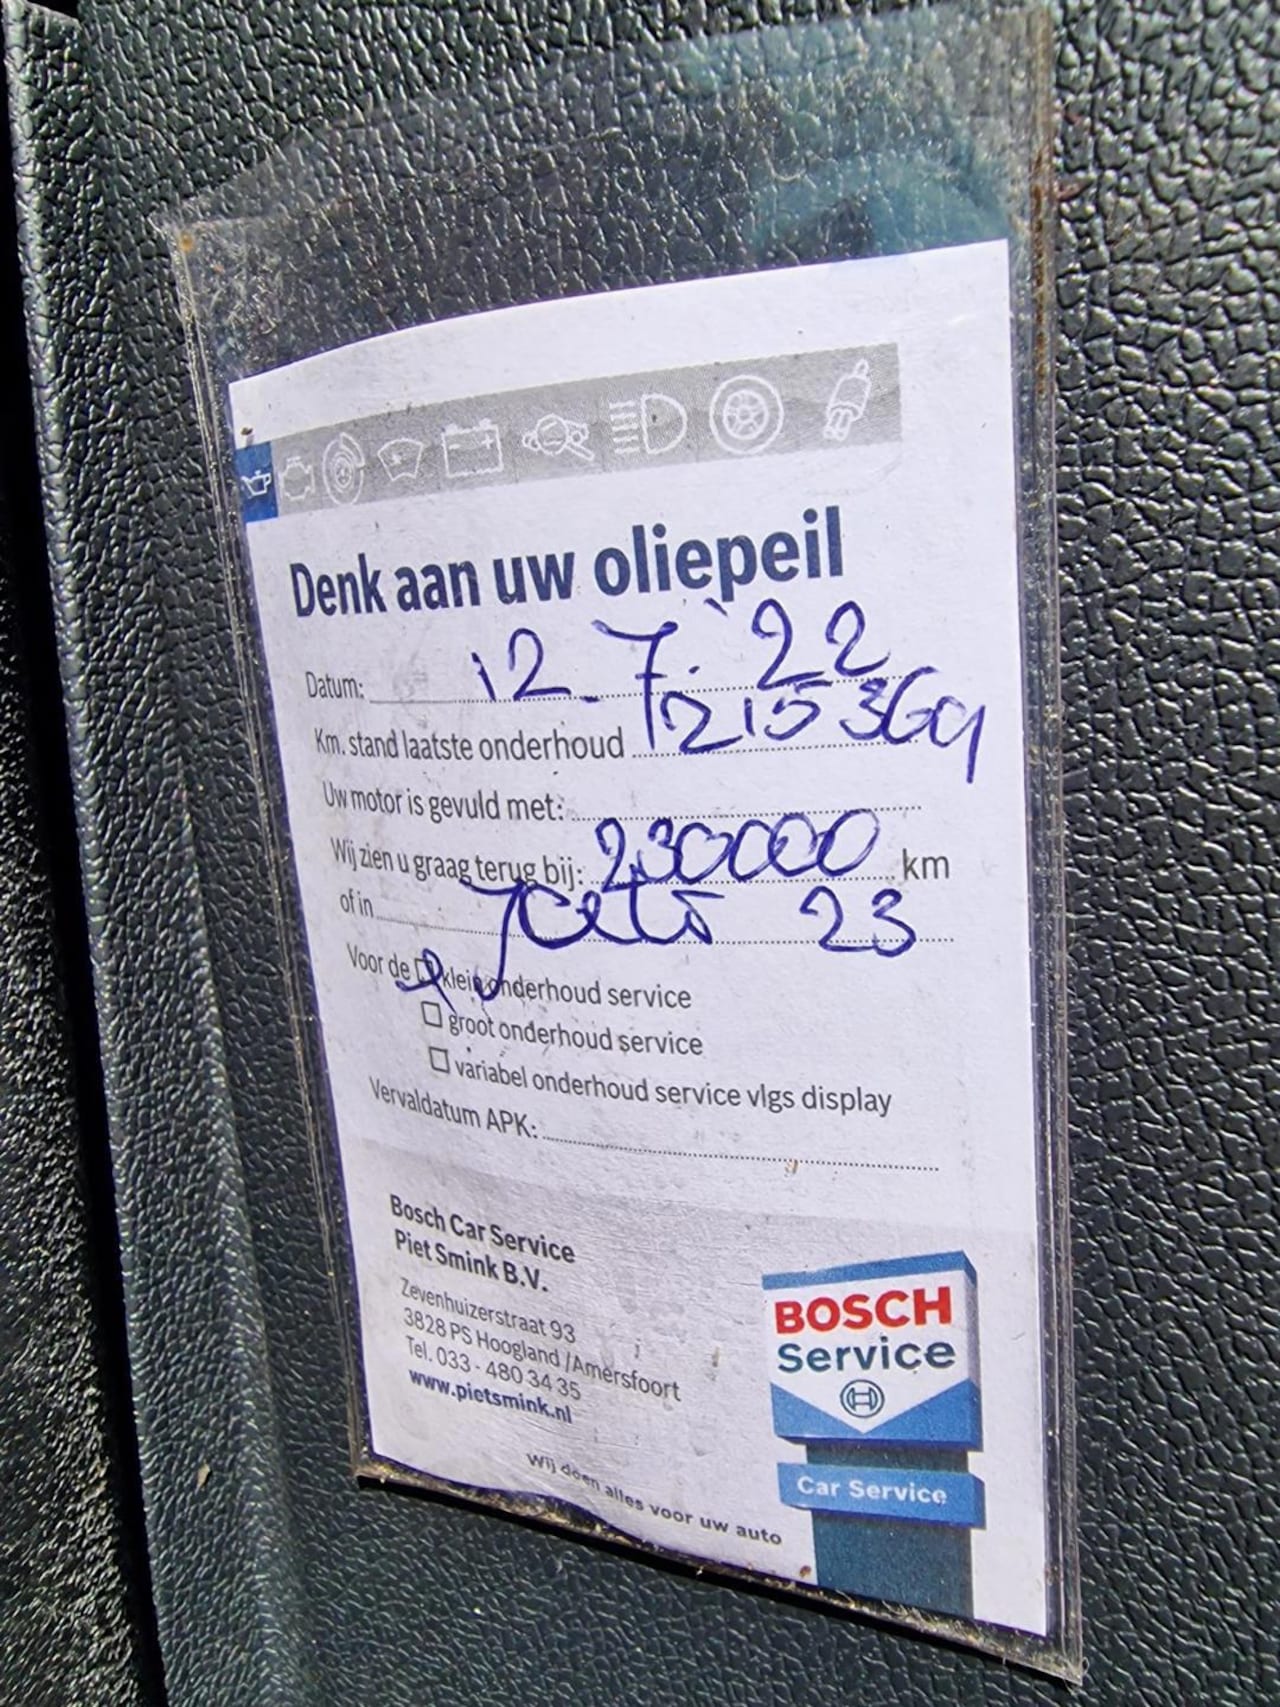 Denk aan uw oliepeil
Datum: 12-7-'22
Km. stand laatste onderhoud 215369
Uw motor is gevuld met:
Wij zien u graag terug bij: 230000 km
of in 23
Voor de klein onderhoud service
groot onderhoud service
variabel onderhoud service vlgs display
Vervaldatum APK:
Bosch Car Service
Piet Smink B.V.
Zevenhuizerstraat 93
3828 PS Hoogland /Amersfoort
Tel. 033 - 480 34 35
www.pietsmink.nl
Wij doen alles voor uw auto
BOSCH
Service
Car Service